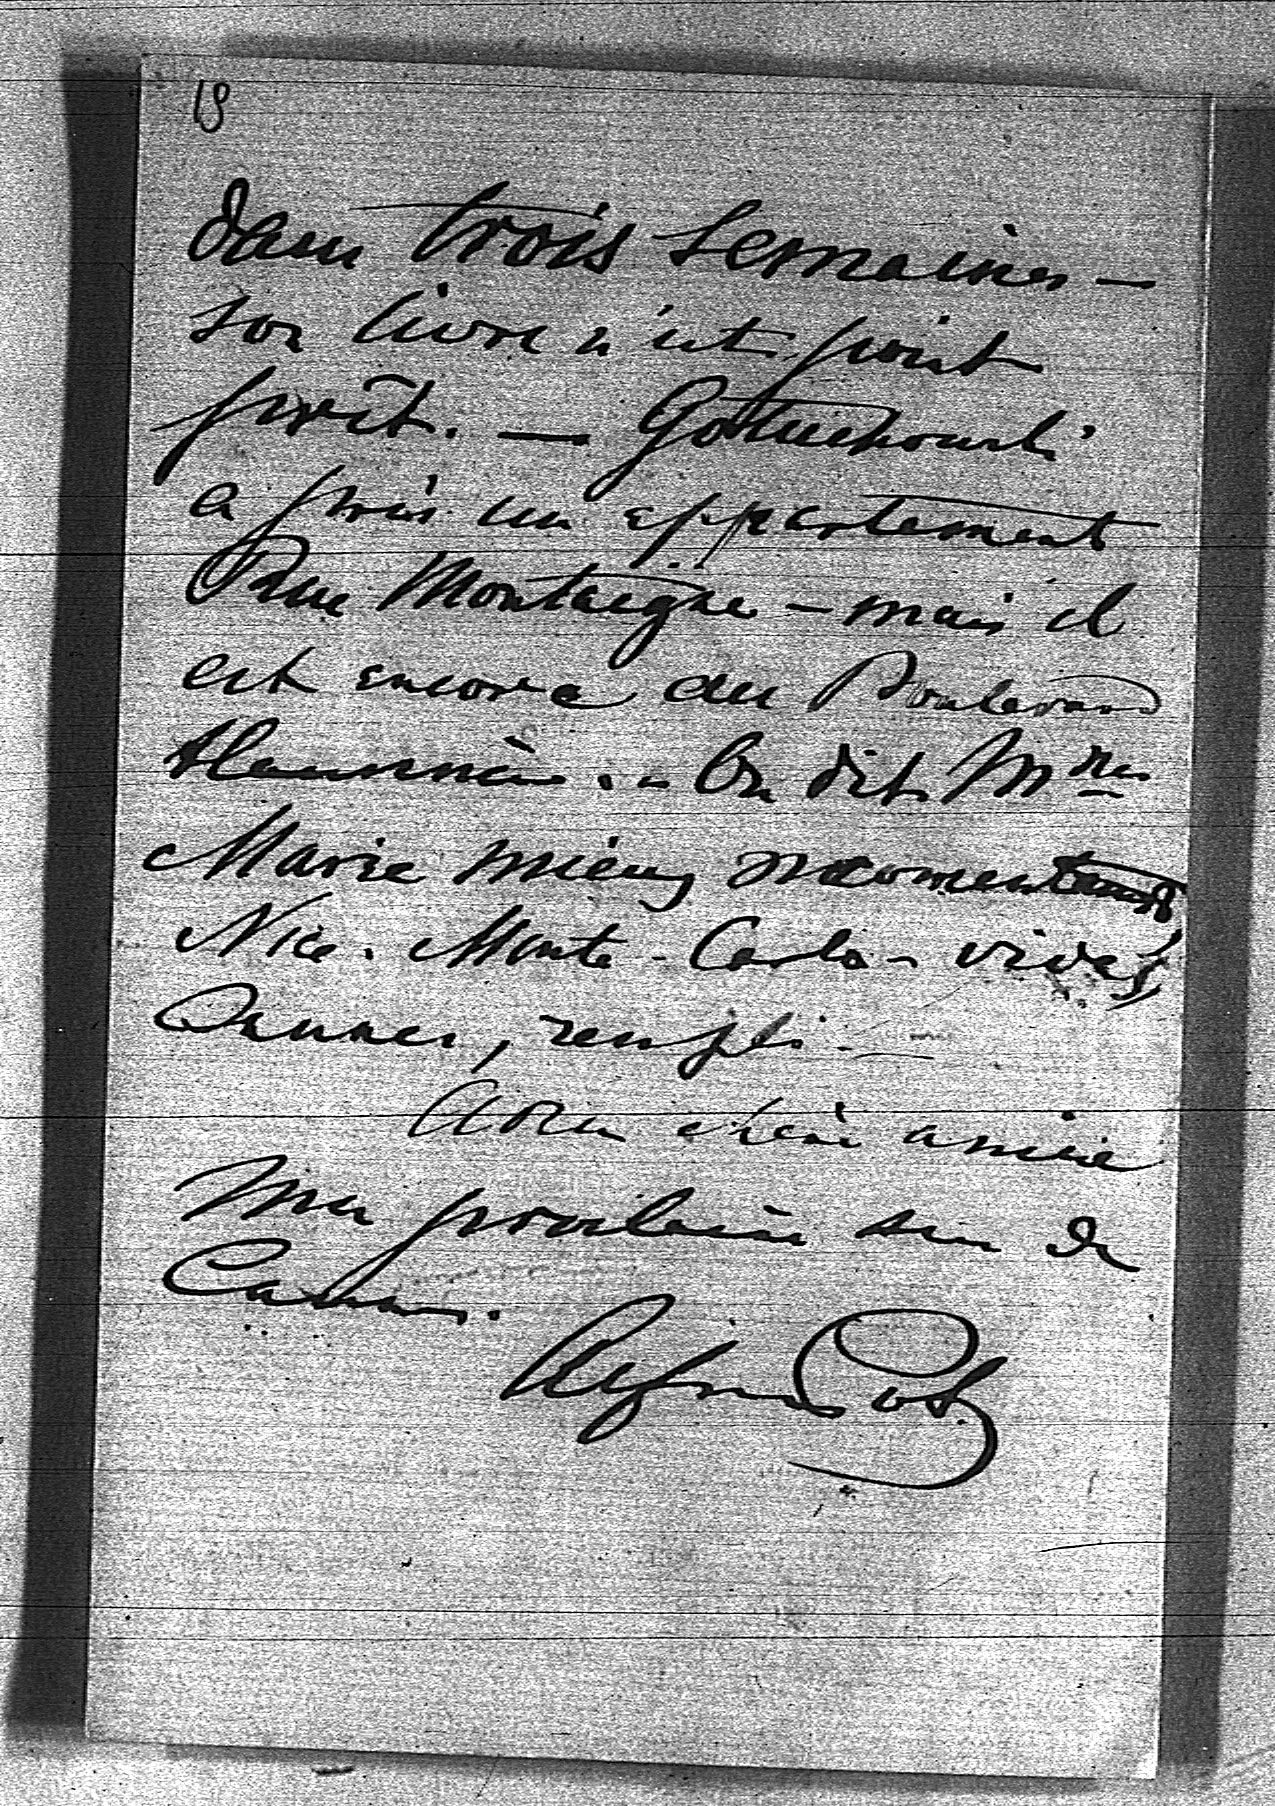 18
dans trois semaines -
son livre n'est point
prêt. — Gotuchowski
a pris un appartement
Rue Montaigne - mais il
est encore au Boulevard
On dit Mme
Marie mieux momentant
Nice. Monte-Carlo - vides,
Cannes, rempli -
Adieu chère amie
Ma prochaine sera de
Cannes.